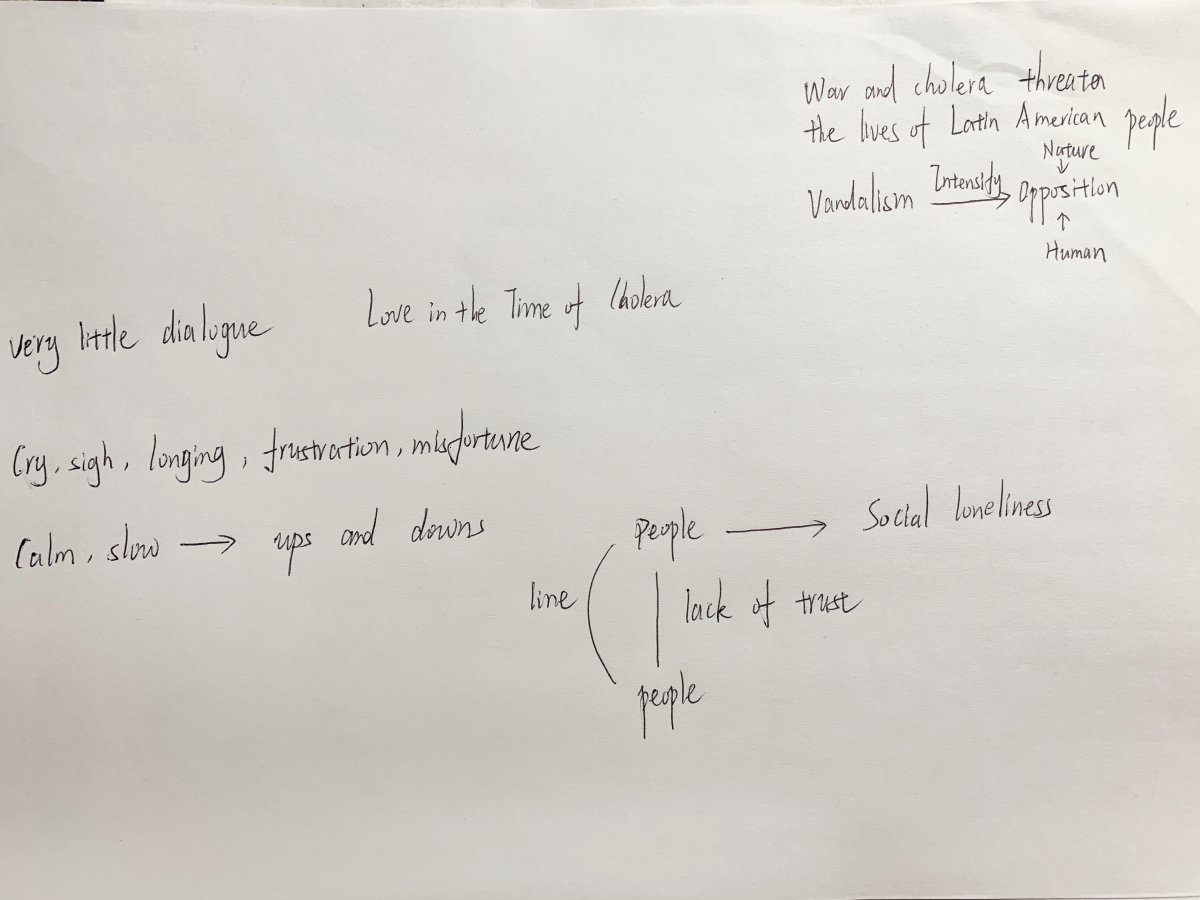 War and cholera threaten
the lives of Latin American people
Nature
Vandalism Intensify Opposition
Human
Love in the Time of Cholera
very little dialogue
Cry, sigh, longing, frustration, misfortune
Calm, slow → ups and downs
people → Social loneliness
line lack of trust
people